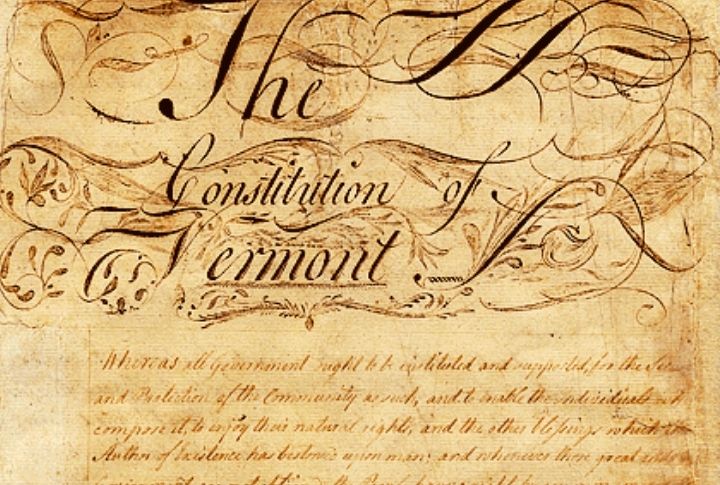 The
Constitution of
Vermont
Whereas all Government ought to be instituted and supported, for the
and Protection of the Community as such, and to enable the individuals
compose it, to enjoy their natural rights, and the other blessings which the
Author of Existence has bestowed upon man; and whenever those great